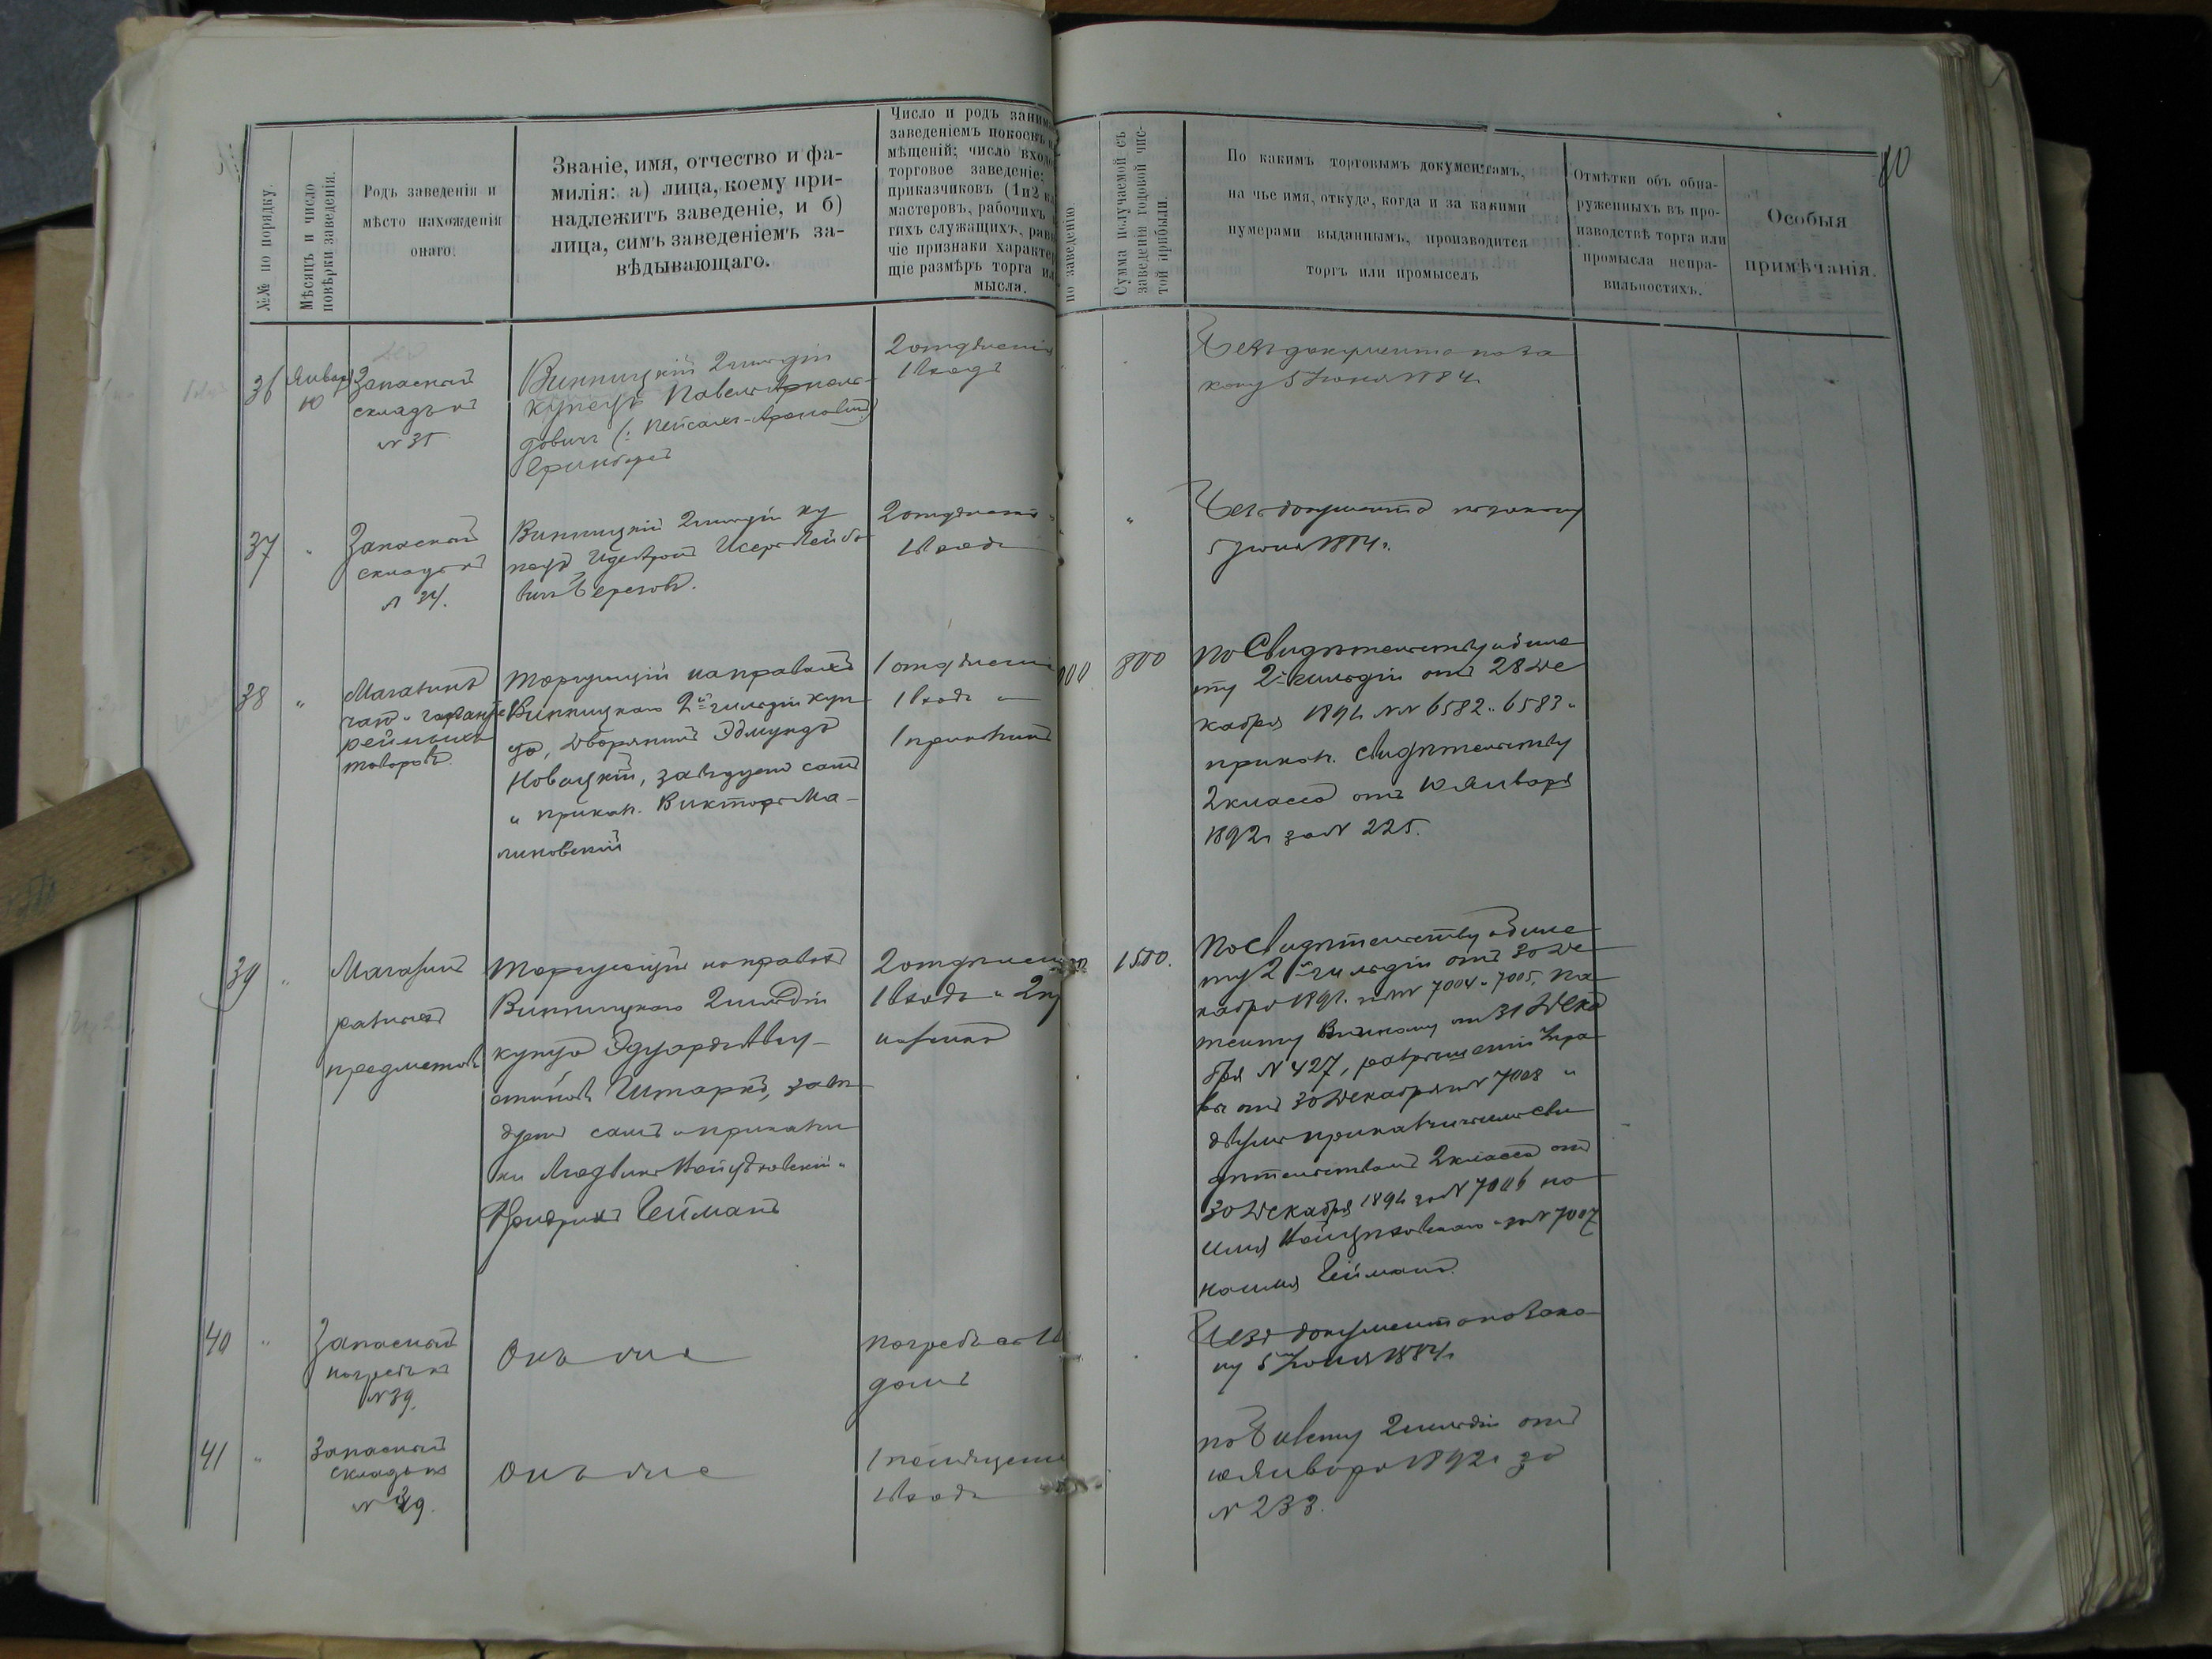 №№ по порядку.
Мѣсяцъ и число
повѣрки заведенія.
Родъ заведенія и
мѣсто нахожденія
онаго.
Званіе, имя, отчество и фа-
милія: а) лица, коему при-
надлежитъ заведеніе, и б)
лица, симъ заведеніемъ за-
вѣдывающаго.
Число и родъ заним
заведеніемъ покоевъ
мѣщеній; число вход
торговое заведеніе;
приказчиковъ (1 и 2 к
мастеровъ, рабочихъ
гихъ служащихъ, рав
чіе признаки характе
щіе размѣръ торга ил
мысла.
по заведенію
Сумма получаемой съ
заведенія годовой чис-
той прибыли.
По какимъ торговымъ документамъ,
на чье имя, откуда, когда и за какими
нумерами выданнымъ, производится
торгъ или промыселъ
Отмѣтки объ обна-
руженныхъ въ про-
изводствѣ торга или
промысла непра-
вильностяхъ.
Особыя
примѣчанія.
40
36
Января
10
Запасный
складъ къ
№ 35
Винницкій 2 гильдіи
купецъ Павелъ Арноль-
довичъ (: Пейсахъ-Ароновичъ)
Гринбергъ
2 отдѣленія
1 входъ
Безъ документа по за
кону 5 Іюня 1884 г.
37
"
Запасный
складъ къ
№ 34.
Винницкій 2 гильдіи ку
пецъ Исеръ Лейбо
вичъ Березовъ.
2 отдѣленія
1 входъ
"
Безъ документа по закону
5 Іюня 1884 г.
38
"
Магазинъ
чая и
товаровъ.
Торгующій на правахъ
Винницкаго 2й гильдіи куп
ца, дворянинъ Эдмундъ
Новацкій, завѣдуетъ самъ
и приказ. Викторъ Ма-
линовскій
1 отдѣленіе
1 входъ и
1 приказчикъ
000
800
По Свидѣтельству и биле
ту 2й гильдіи отъ 28 Де
кабря 1891 г. №№ 6582 и 6583 и
приказ. свидѣтельству
2 класса отъ 10 Января
1892 г за № 225.
39
"
Магазинъ
разныхъ
предметовъ
Торгующій на правахъ
Винницкаго 2 гильдіи
купца Эдуардъ Авгу-
стиновъ Штаркъ, завѣ
дуетъ самъ и приказчи
ки Людвикъ Войцѣховскій и
Фридрихъ Гейманъ
2 отдѣлен
1 входъ и 2 пр
иказчика
1500.
По Свидѣтельству и биле
ту 2й гильдіи отъ 30 Де
кабря 1891 г. за №№ 7004 и 7005, Па
тенту отъ 31 Дека
бря № 427, разрѣшенію Упра
вы отъ 30 Декабря за № 7008 и
двумъ приказчичьимъ сви
дѣтельствамъ 2 класса отъ
30 Декабря 1891 г за № 7006 на
имя Войцѣховскаго и за № 7007
на имя Гейманъ.
40
"
Запасный
погребъ къ
№ 39.
Онъ же
погребъ въ
домѣ
Безъ документа по Зако
ну 5 Іюня 1884 г.
41
"
Запасный
складъ къ
№ 39.
Онъ же
1 помѣщеніе
1 входъ
по Билету 2 гильдіи отъ
10 Января 1892 г за
№ 233.